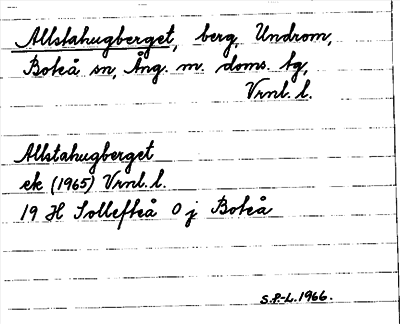 Allstahugberget, berg, Undrom,
Boteå sn, Ång. m. doms. tg,
Vrnl. l.
Allstahugberget
ek (1965) Vrnl. l.
19 H Sollefteå 0 j Boteå
S.P-L. 1966.